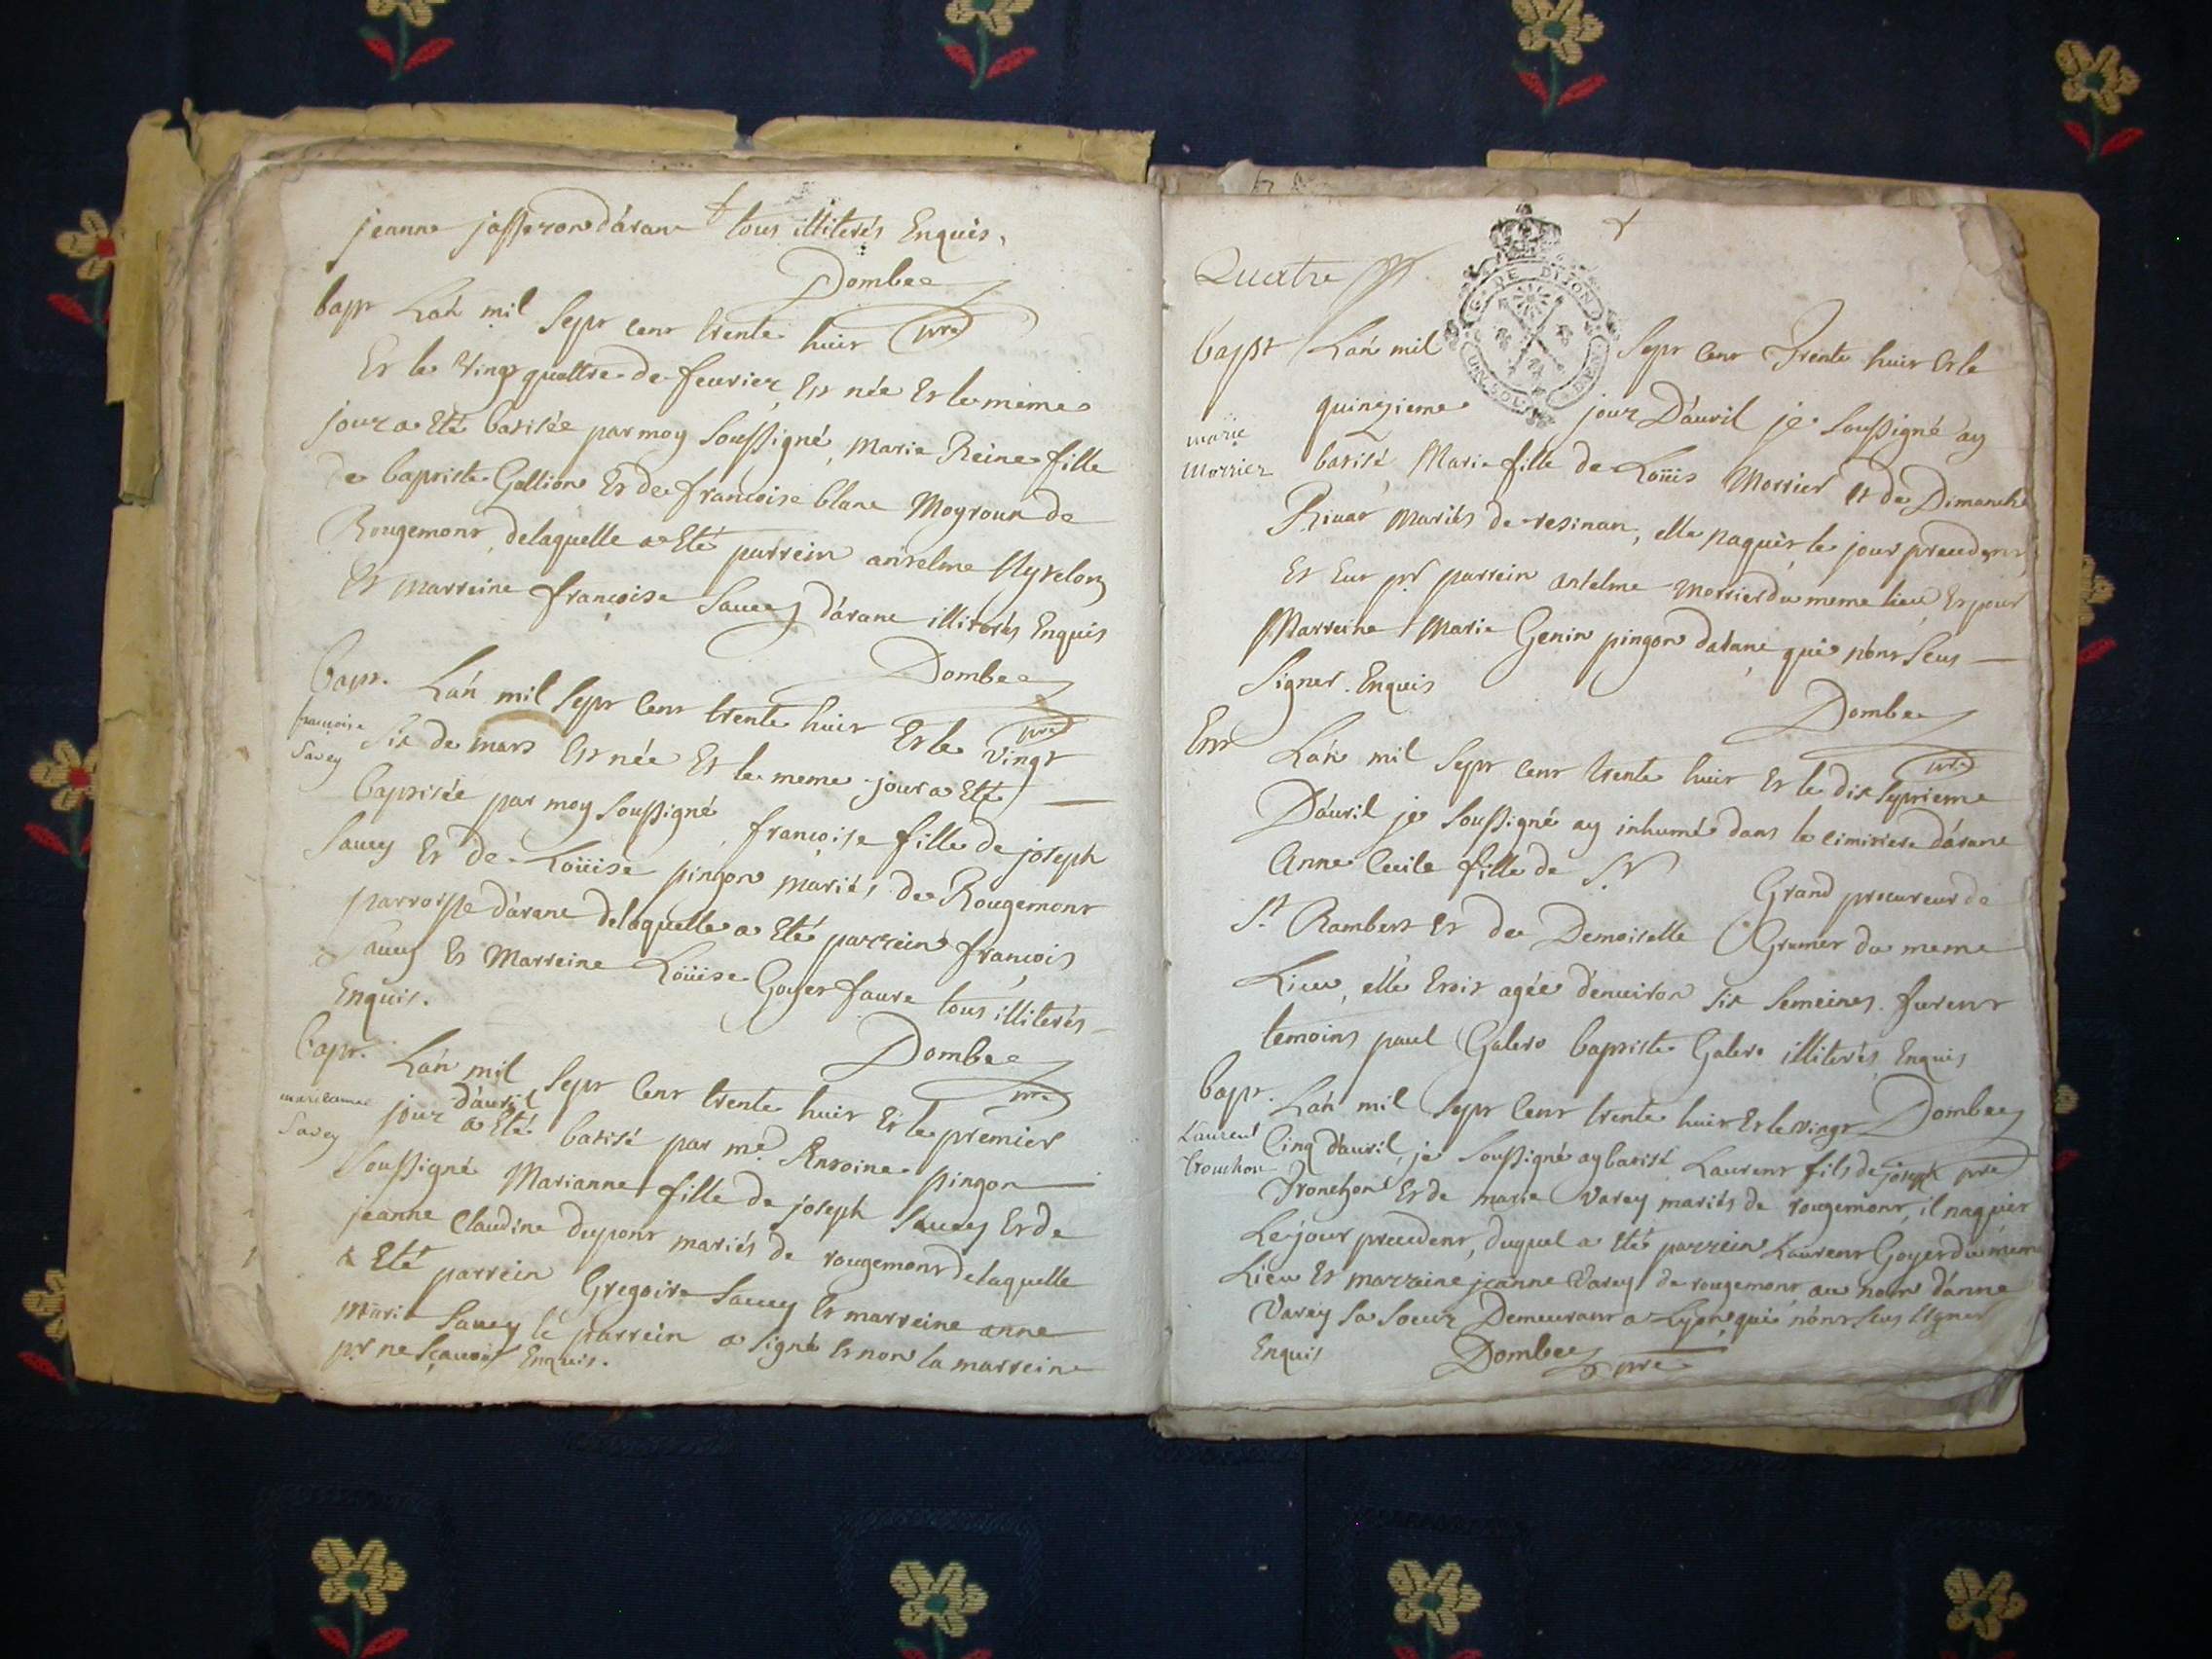 jeanne jasseron d'aran tous illiterés Enquis,
Dombee
pre
bapt L'an mil Sept cent trente huit
Et le vingt quattre de fevrier, Est née Et le même
jour a Eté batisée par moy Soussigné, Marie Reine fille
de baptiste Gallion Et de francoise blanc Moyroux de
Rougemont, de laquelle a Eté parrein anselme
Et marreine françoise Savey d'arane illiterés Enquis
Dombee
pre
Bapt. L'an mil Sept cent trente huit Et le vingt
françoise
Savey
Six de mars Est née Et le meme jour a Eté
baptisée par moy Soussigné, françoise fille de joseph
Savey Et de Loüise pingon mariés de Rougemont
parroisse d'arane de laquelle a Eté parrein françois
Savey Et Marreine Loüise Goyet faure tous illiterés
Enquis.
Dombee
pre
Bapt. L'an mil Sept cent trente huit Et le premier
marianne
Savey
jour d'avril a Eté batisé par mre Antoine pingon
Soussigné Marianne fille de joseph Savey Et de
jeanne Claudine dupont mariés de rougemont de laquelle
a Eté parrein Gregoire Savey Et marreine anne
Marie Savey le parrein a signé Et non la marreine
pr ne sçavoir Enquis.
Quatre
G. DE DIJON
UN SOL
Bapt L'an mil Sept cent Trente huit Et le
quinzieme jour D'avril je Soussigné ay
marie
Morrier
batisé Marie fille de Loüis Morrier Et de Dimanche
Rivat Mariés de resinan, elle naquit le jour precedent
Et Eut pr parrein antelme Morrier du meme lieu Et pour
Marreine Marie Genin pingon d'arane qui n'ont Seus
Signer. Enquis
Dombee
pre
Entt L'an mil Sept cent trente huit Et le dix Septieme
D'avril je Soussigné ay inhumé dans le cimitiere d'arane
Anne Cecile fille de Sr Grand procureur de
St Rambert Et de Demoiselle Grumet du meme
Lieu, elle Etoit agée d'environ six Semeines. furent
temoins paul Galero baptiste Galero illiterés, Enquis
Dombee
pre
Bapt. L'an mil Sept cent trente huit Et le vingt
Laurent
tronchon
Cinq d'avril, je Soussigné ay batisé Laurent fils de joseph
Tronchon Et de marie Varey mariés de rougemont, il naquit
Le jour precedent, duquel a Eté parrein Laurent Goyet du meme
Lieu Et marraine jeanne Varey de rougemont au nom d'anne
Varey Sa Soeur Demeurant a Lyon, qui n'ont Seus Signer
Enquis Dombee pre